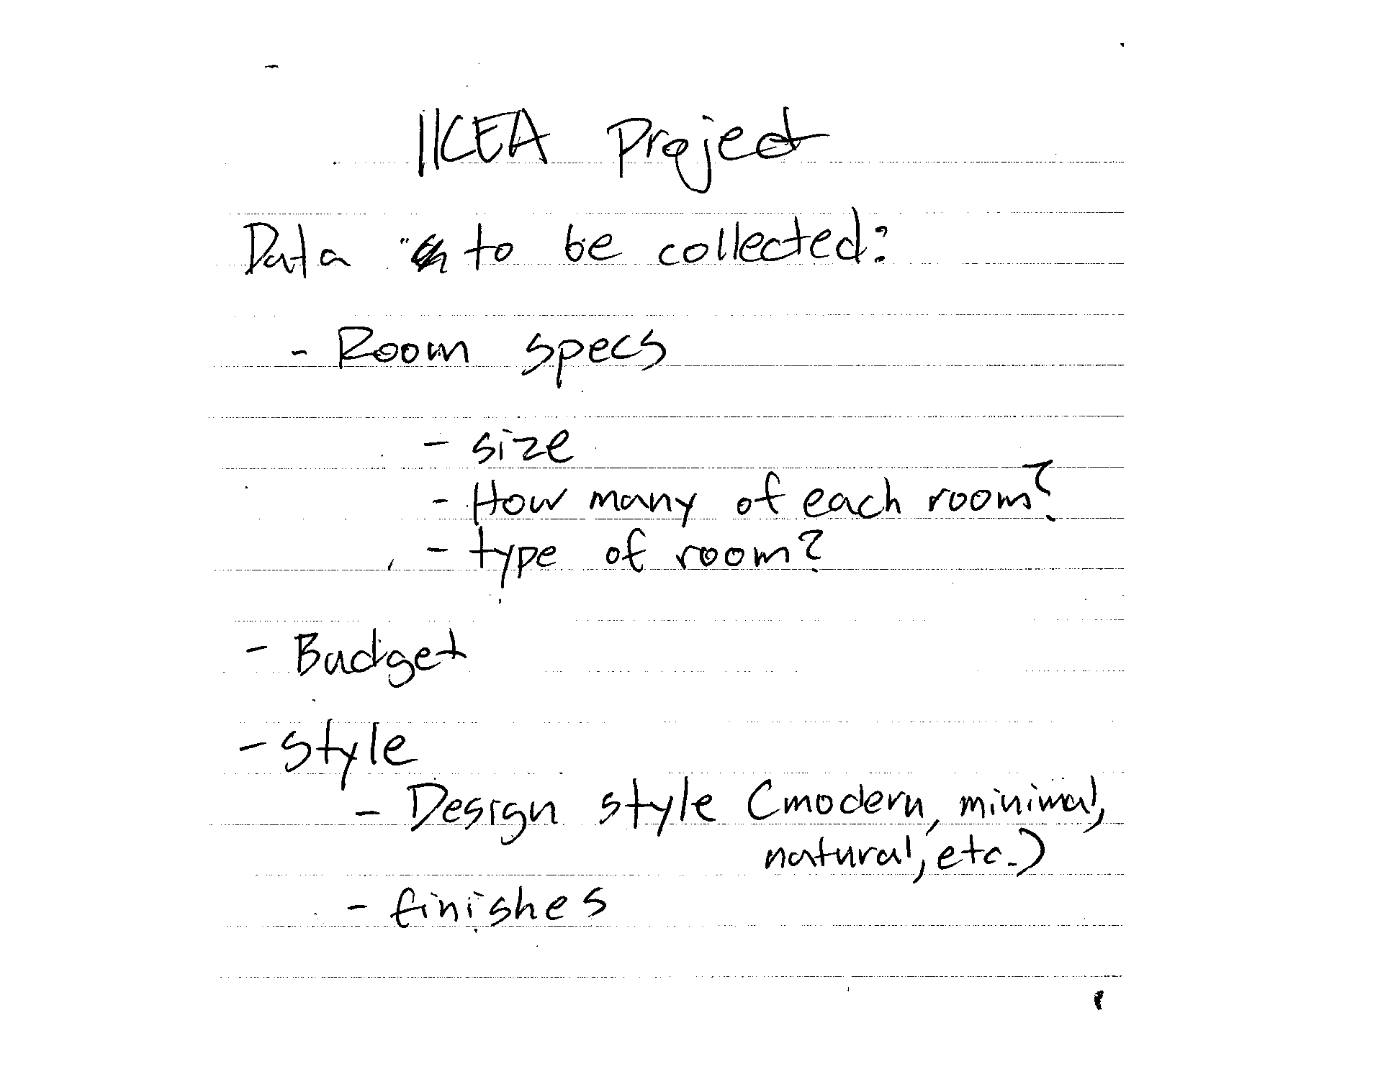 IKEA Project
Data to be collected:
- Room specs
- size
- How many of each room?
- type of room?
- Budget
- style
- Design style (modern, minimal,
natural, etc.)
- finishes